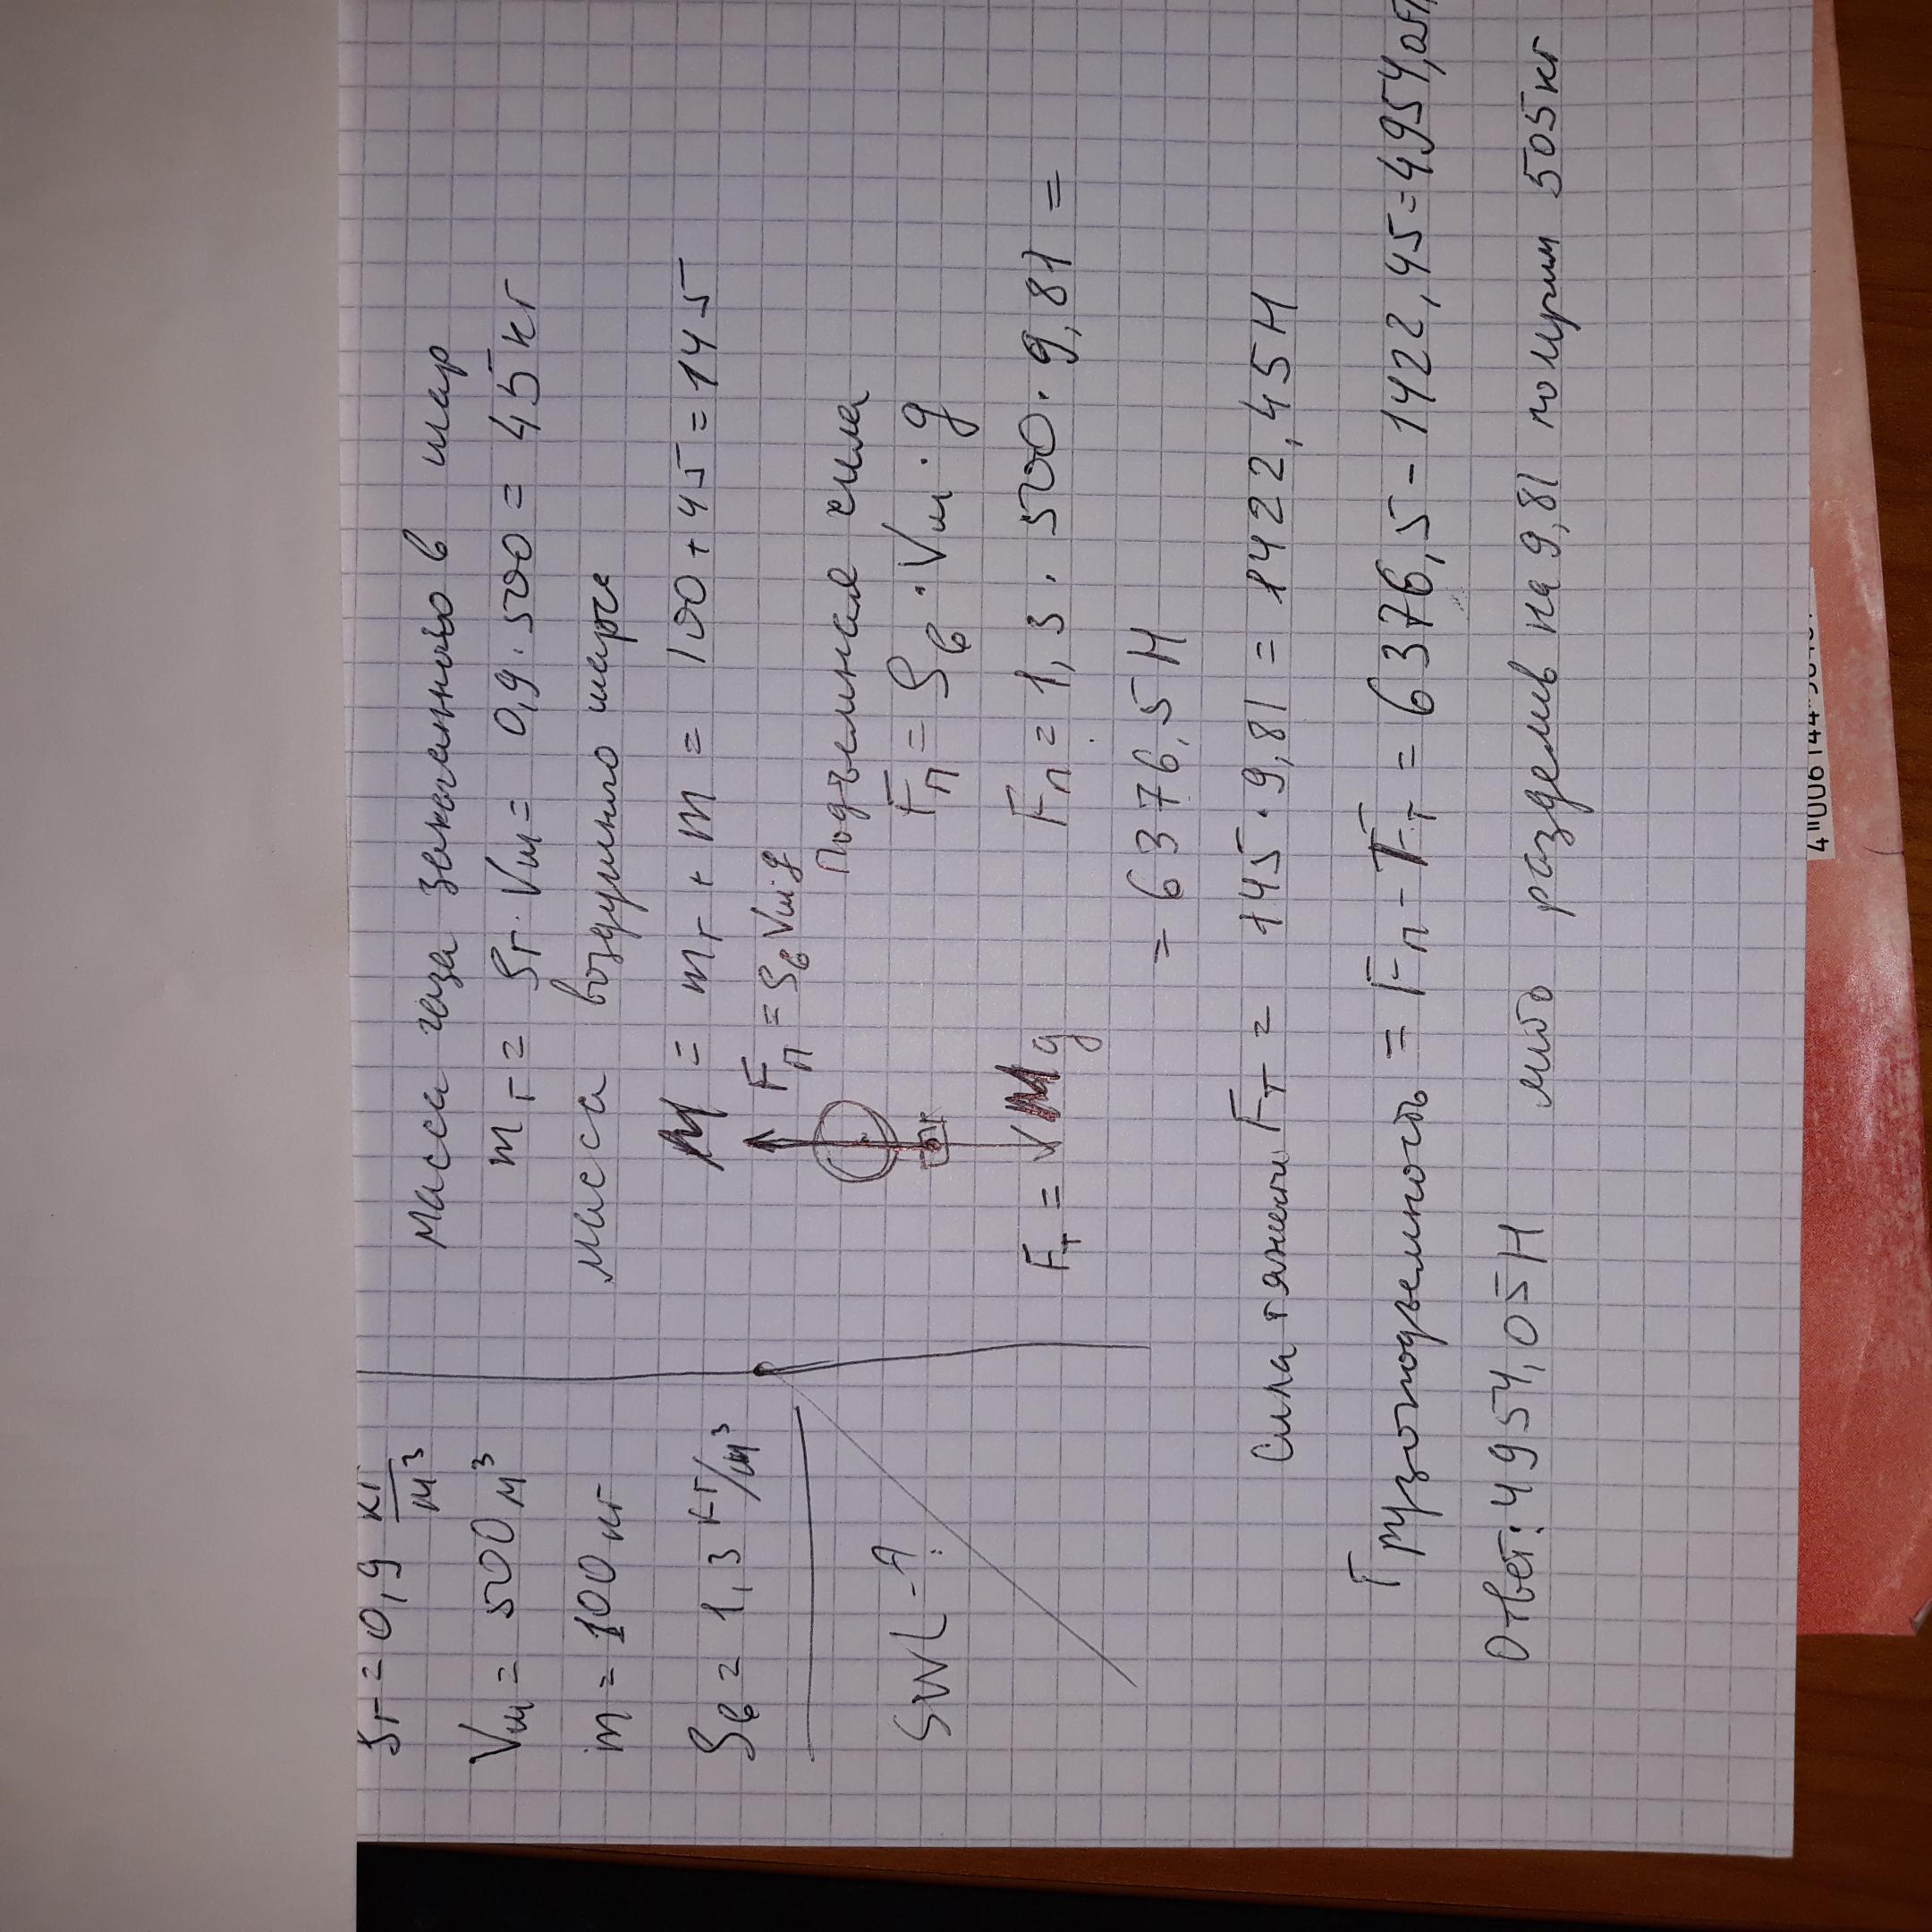 ρг = 0,9 кг/м³
Vш = 500 м³
m = 100 кг
ρв = 1,3 кг/м³
SWL - ?
Масса газа закачанного в шар
mг = ρг · Vш = 0,9 · 500 = 45 кг
масса воздушного шара
M = mг + m = 100 + 45 = 145
Fп = ρв Vш g
Подъемная сила
Fп = ρв · Vш · g
Fт = Mg
Fп = 1,3 · 500 · 9,81 =
= 6376,5 Н
Сила тяжести Fт = 145 · 9,81 = 1422,45 Н
Грузоподъемность = Fп - Fт = 6376,5 - 1422,45 = 4954,05
Ответ: 4954,05 Н либо разделив на 9,81 получим 505 кг